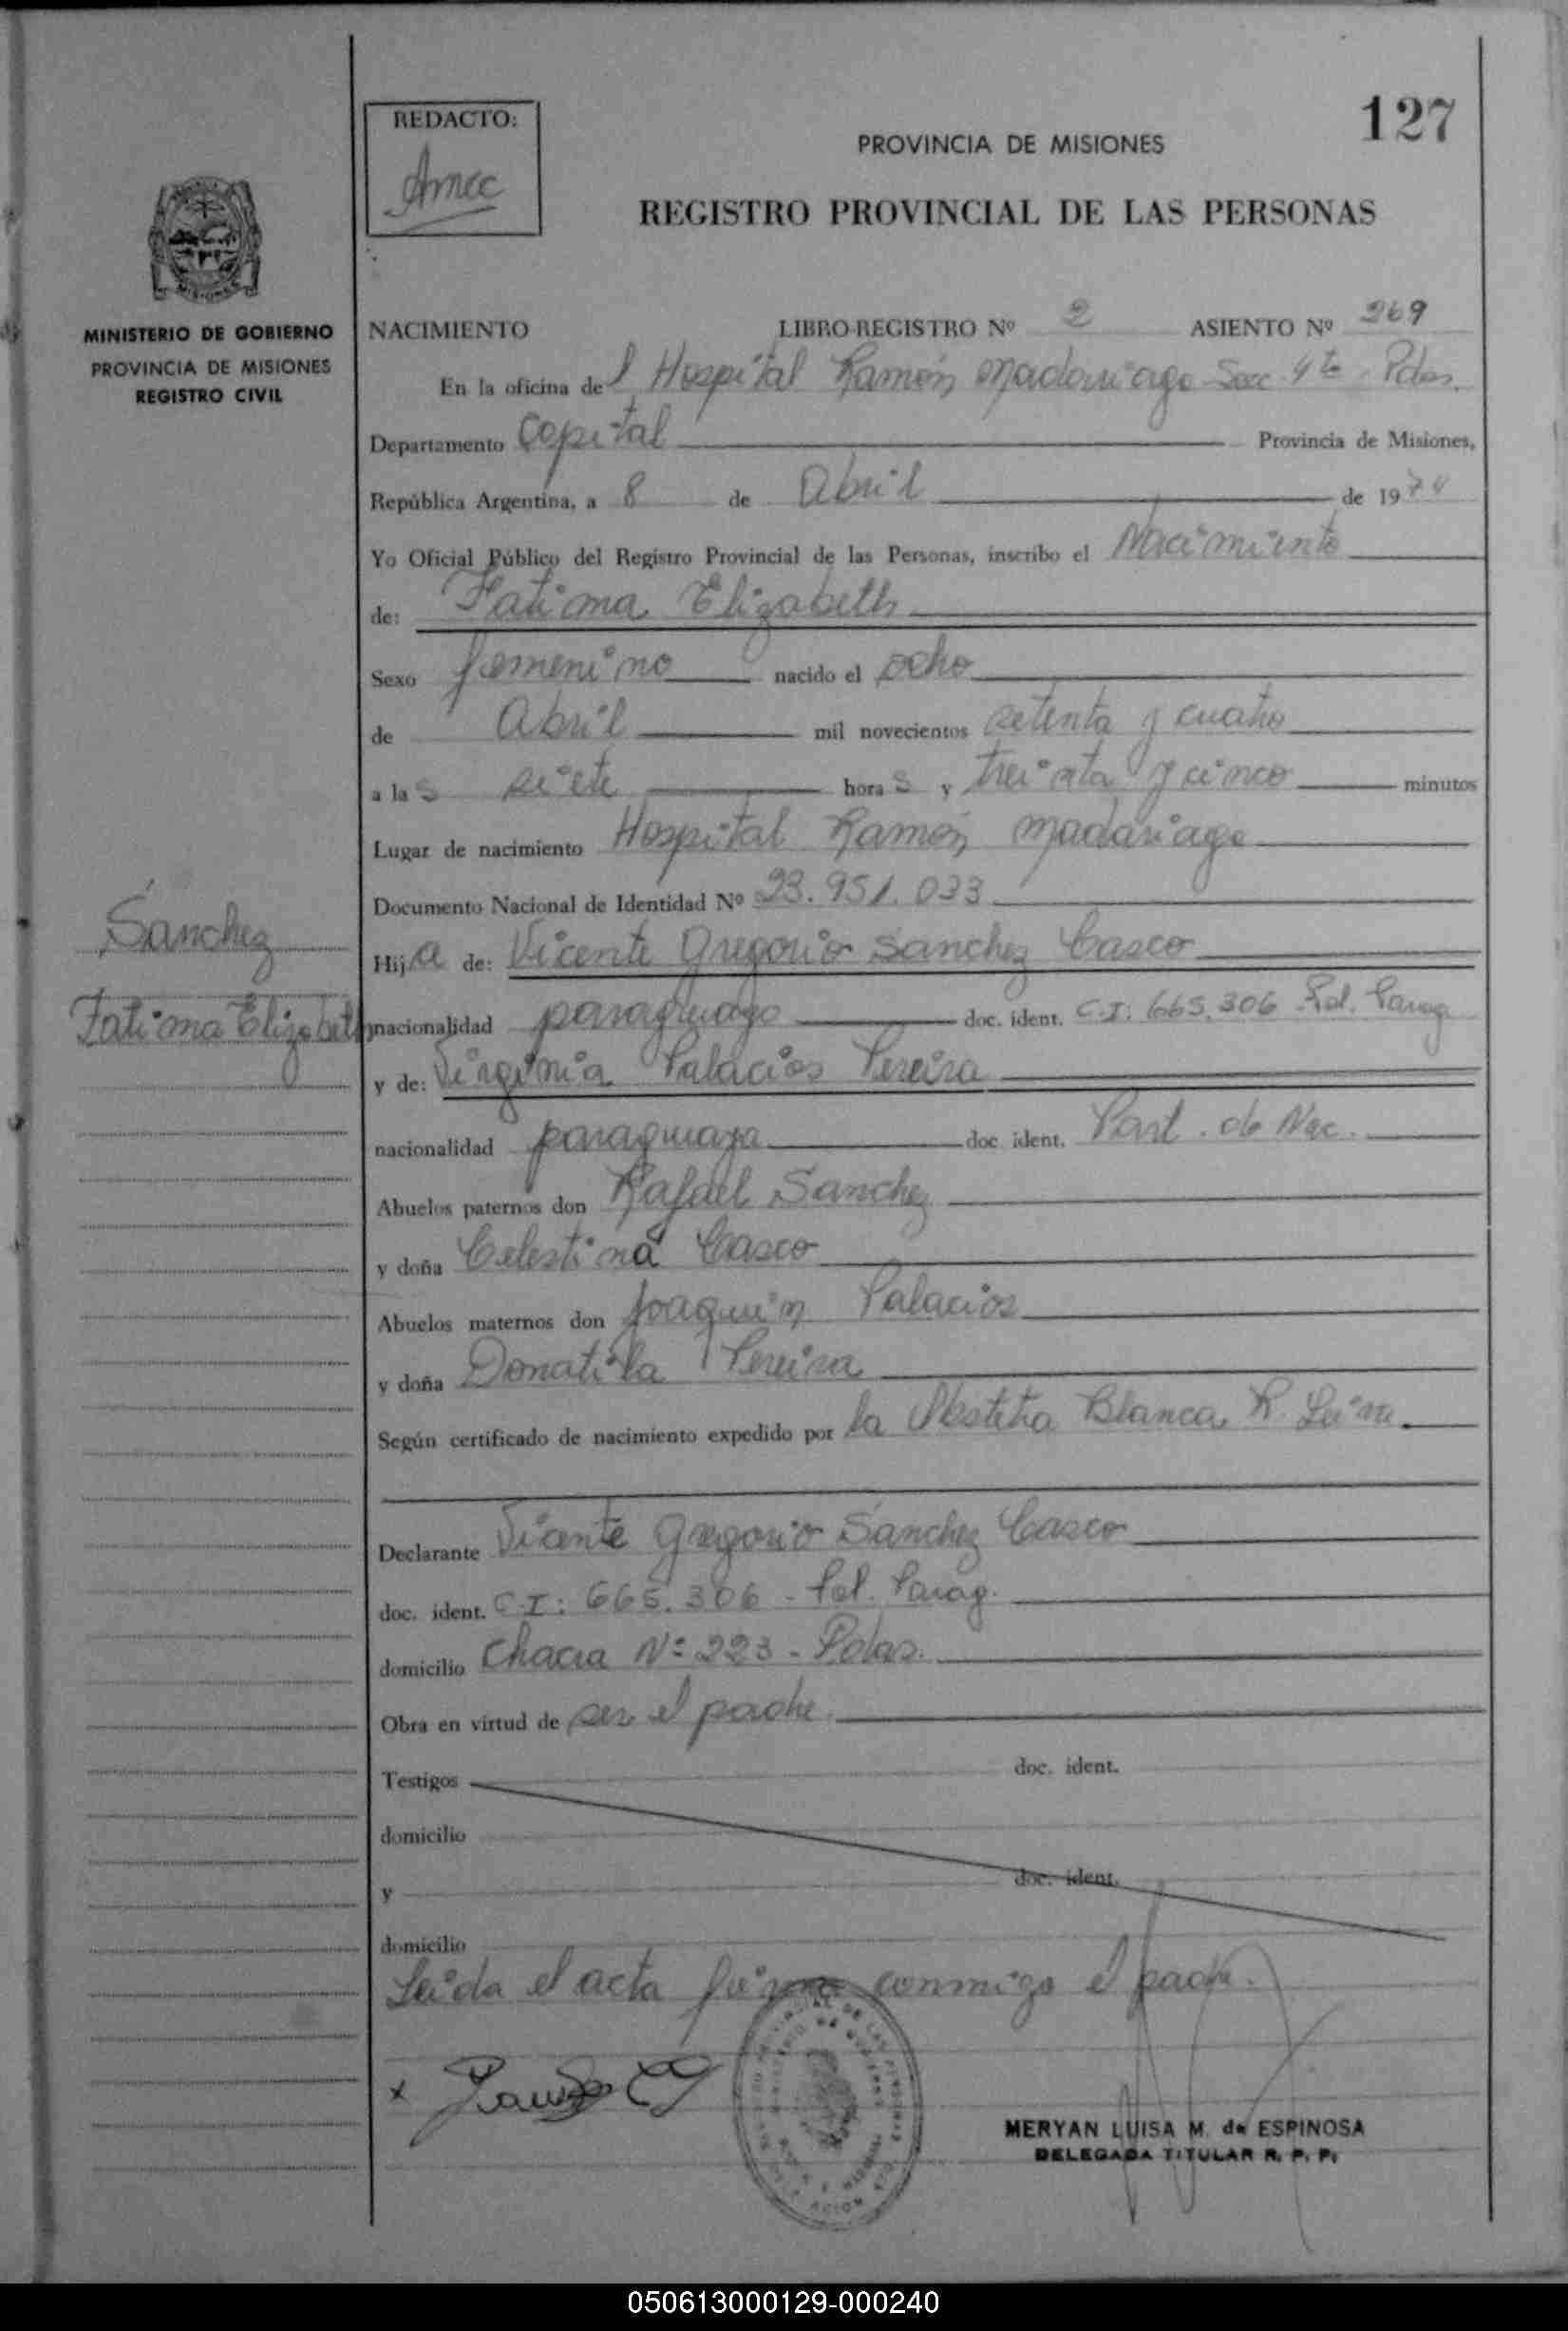 127
REDACTO:
PROVINCIA DE MISIONES
REGISTRO PROVINCIAL DE LAS PERSONAS
MINISTERIO DE GOBIERNO
PROVINCIA DE MISIONES
REGISTRO CIVIL
NACIMIENTO LIBRO REGISTRO Nº 2 ASIENTO Nº 269
En la oficina del Hospital Ramón Madariaga Secc 4ta Pdas.
Departamento Capital Provincia de Misiones,
República Argentina, a 8 de Abril de 1974
Yo Oficial Público del Registro Provincial de las Personas, inscribo el Nacimiento
de: Fatima Elizabeth
Sexo femenino nacido el ocho
de Abril mil novecientos setenta y cuatro
a las siete horas y treinta y cinco minutos
Lugar de nacimiento Hospital Ramón Madariaga
Documento Nacional de Identidad Nº 23.951.033
Sanchez
Hija de: Vicente Gregorio Sanchez Casco
Fatima Elizabeth
nacionalidad paraguayo doc. ident. C.I: 665.306 - Pol. Parag
y de: Virginia Palacios Pereira
nacionalidad paraguaya doc. ident. Part. de Nac.
Abuelos paternos don Rafael Sanchez
y doña Celestina Casco
Abuelos maternos don Joaquin Palacios
y doña Donatila Pereira
Según certificado de nacimiento expedido por la Obstetra Blanca R.
Declarante Vicente Gregorio Sanchez Casco
doc. ident. C.I: 665.306 - Pol. Parag.
domicilio Chacra Nº 223 - Pdas.
Obra en virtud de ser el padre
Testigos doc. ident.
domicilio
y doc. ident.
domicilio
Leida el acta firma conmigo el padre.
x
MERYAN LUISA M. de ESPINOSA
DELEGADA TITULAR R. P. P.
050613000129-000240